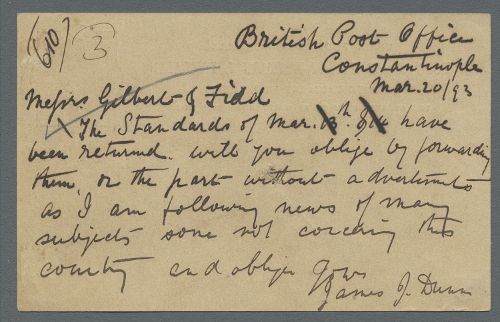 (610)
3
British Post Office
Constantinople
Mar. 20/93
Messrs Gilbert & Fidd
X The Standards of Mar. have
been returned. will you oblige by forwarding
them, or the part without advertisments
as I am following news of many
subjects some not concering this
country and oblige yours
James J. Dunn